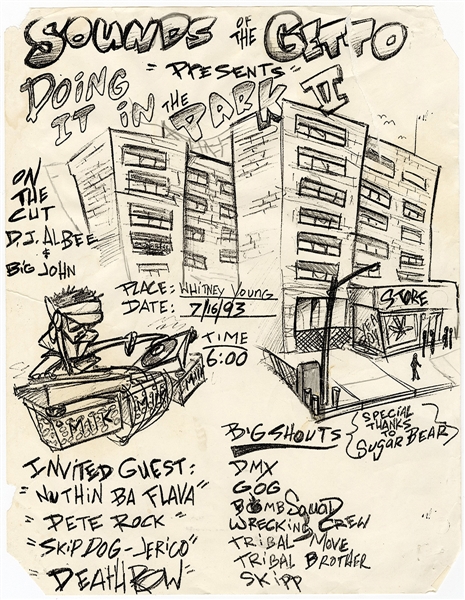 SOUNDS OF THE GETTO
"PRESENTS"
DOING IT IN THE PARK II
ON
THE
CUT
D.J. ALBEE
&
BIG JOHN
PLACE: WHITNEY YOUNG
DATE: 7/16/93
TIME
6:00
STORE
MILK
MILK
INVITED GUEST:
"NUTHIN BA FLAVA"
"PETE ROCK"
"SKIP DOG-JERICO"
"DEATH ROW"
BIG SHOUTS
SPECIAL
THANKS
TO
SUGAR BEAR
DMX
GOG
BOMB SQUAD
WRECKING CREW
TRIBAL MOVE
TRIBAL BROTHER
SKIPP